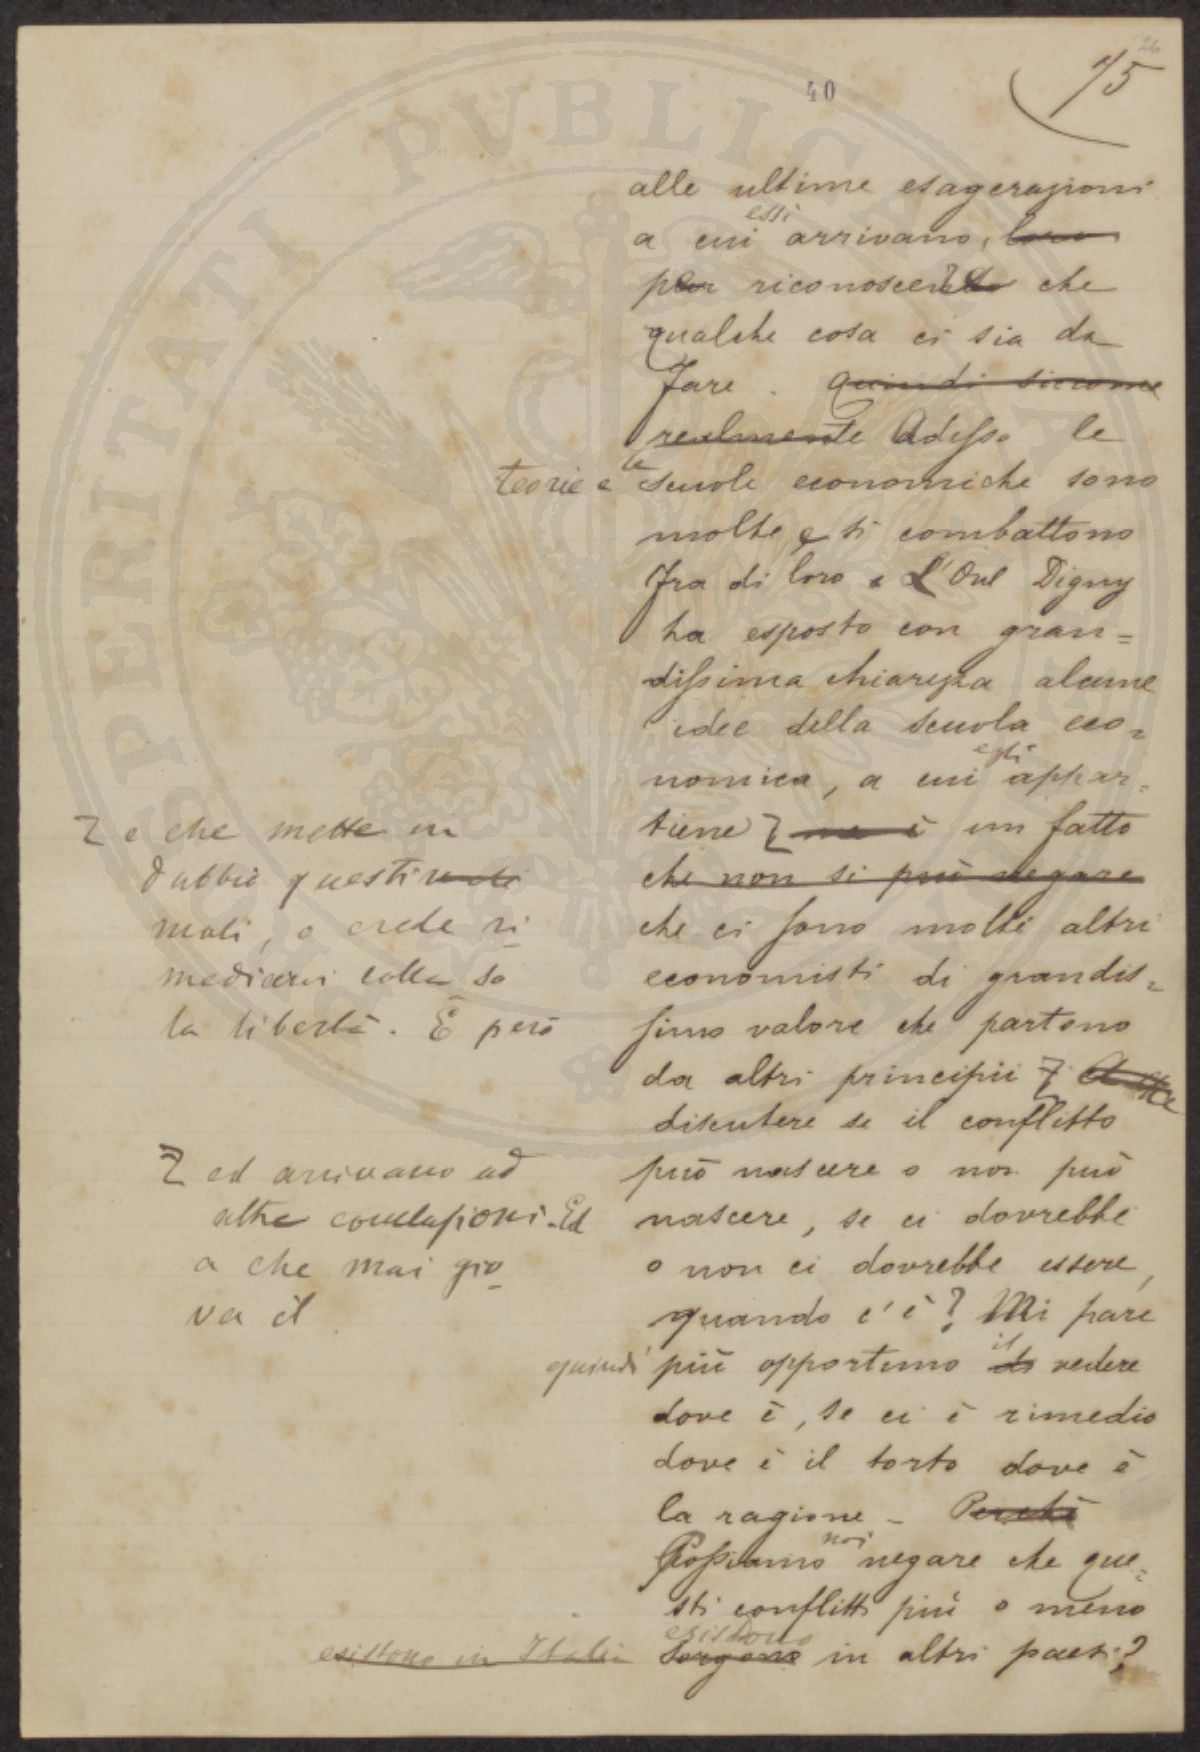 26
15
40
alle ultime esagerazioni
essi
a cui arrivano, loro
per riconoscere che
qualche cosa ci sia da
fare. Quindi siccome
realmente Adesso le
teorie e le scuole economiche sono
molte e si combattono
fra di loro e L'Onl Digny
ha esposto con gran=
dissima chiarezza alcune
idee della scuola eco=
egli
nomica, a cui appar=
tiene ma è un fatto
che non si può negare
che ci sono molti altri
economisti di grandis=
simo valore che partono
da altri principii
discutere se il conflitto
può nascere o non può
nascere, se ci dovrebbe
o non ci dovrebbe essere,
quando c'è? Mi pare
il
quindi più opportuno di vedere
dove è, se ci è rimedio
dove è il torto dove è
la ragione - Perchè
noi
Possiamo negare che que=
sti conflitti più o meno
esistono
esistono in Italia Sorgono in altri paesi?
e che mette in
dubbio questi
mali, o crede ri_
mediarvi colla so
la libertà. È però
ed arrivano ad
altre conclusioni. Ed
a che mai gio_
va il
OSPERITATI PUBLICAE